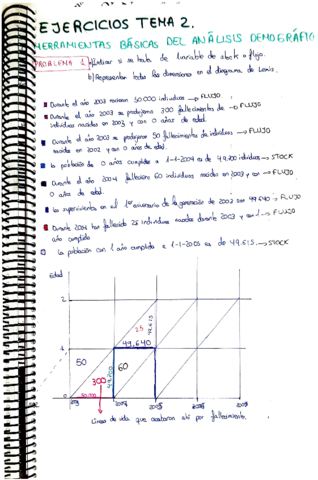 EJERCICIOS TEMA 2.
HERRAMIENTAS BÁSICAS DEL ANÁLISIS DEMOGRÁFICO
PROBLEMA 1 a) Indicar si se trata de 1 variable de stock o flujo.
b) Representar todas las dimensiones en el diagrama de Lexis.
Durante el año 2003 nacieron 50.000 individuos → FLUJO
Durante el año 2003 se produjeron 300 fallecimientos de → FLUJO
individuos nacidos en 2003 y con 0 años de edad.
Durante el año 2003 se produjeron 50 fallecimientos de individuos → FLUJO
nacidos en 2002 y con 0 años de edad.
la población de 0 años cumplidos a 1-1-2004 es de 49.700 individuos → STOCK
Durante el año 2004 fallecieron 60 individuos nacidos en 2003 y con → FLUJO
0 años de edad.
los supervivientes en el 1er aniversario de la generación de 2003 son 49.640 → FLUJO
Durante 2004 han fallecido 25 individuos nacidos durante 2003 y con 1 → FLUJO
año cumplido
la población con 1 año cumplido a 1-1-2005 es de 49.615. → STOCK
Edad
2
25
49.615
1
49.640
50
300
49.700
60
0
50.000
2003
2004
2005
Líneas de vida que acabaron ahí por fallecimiento.